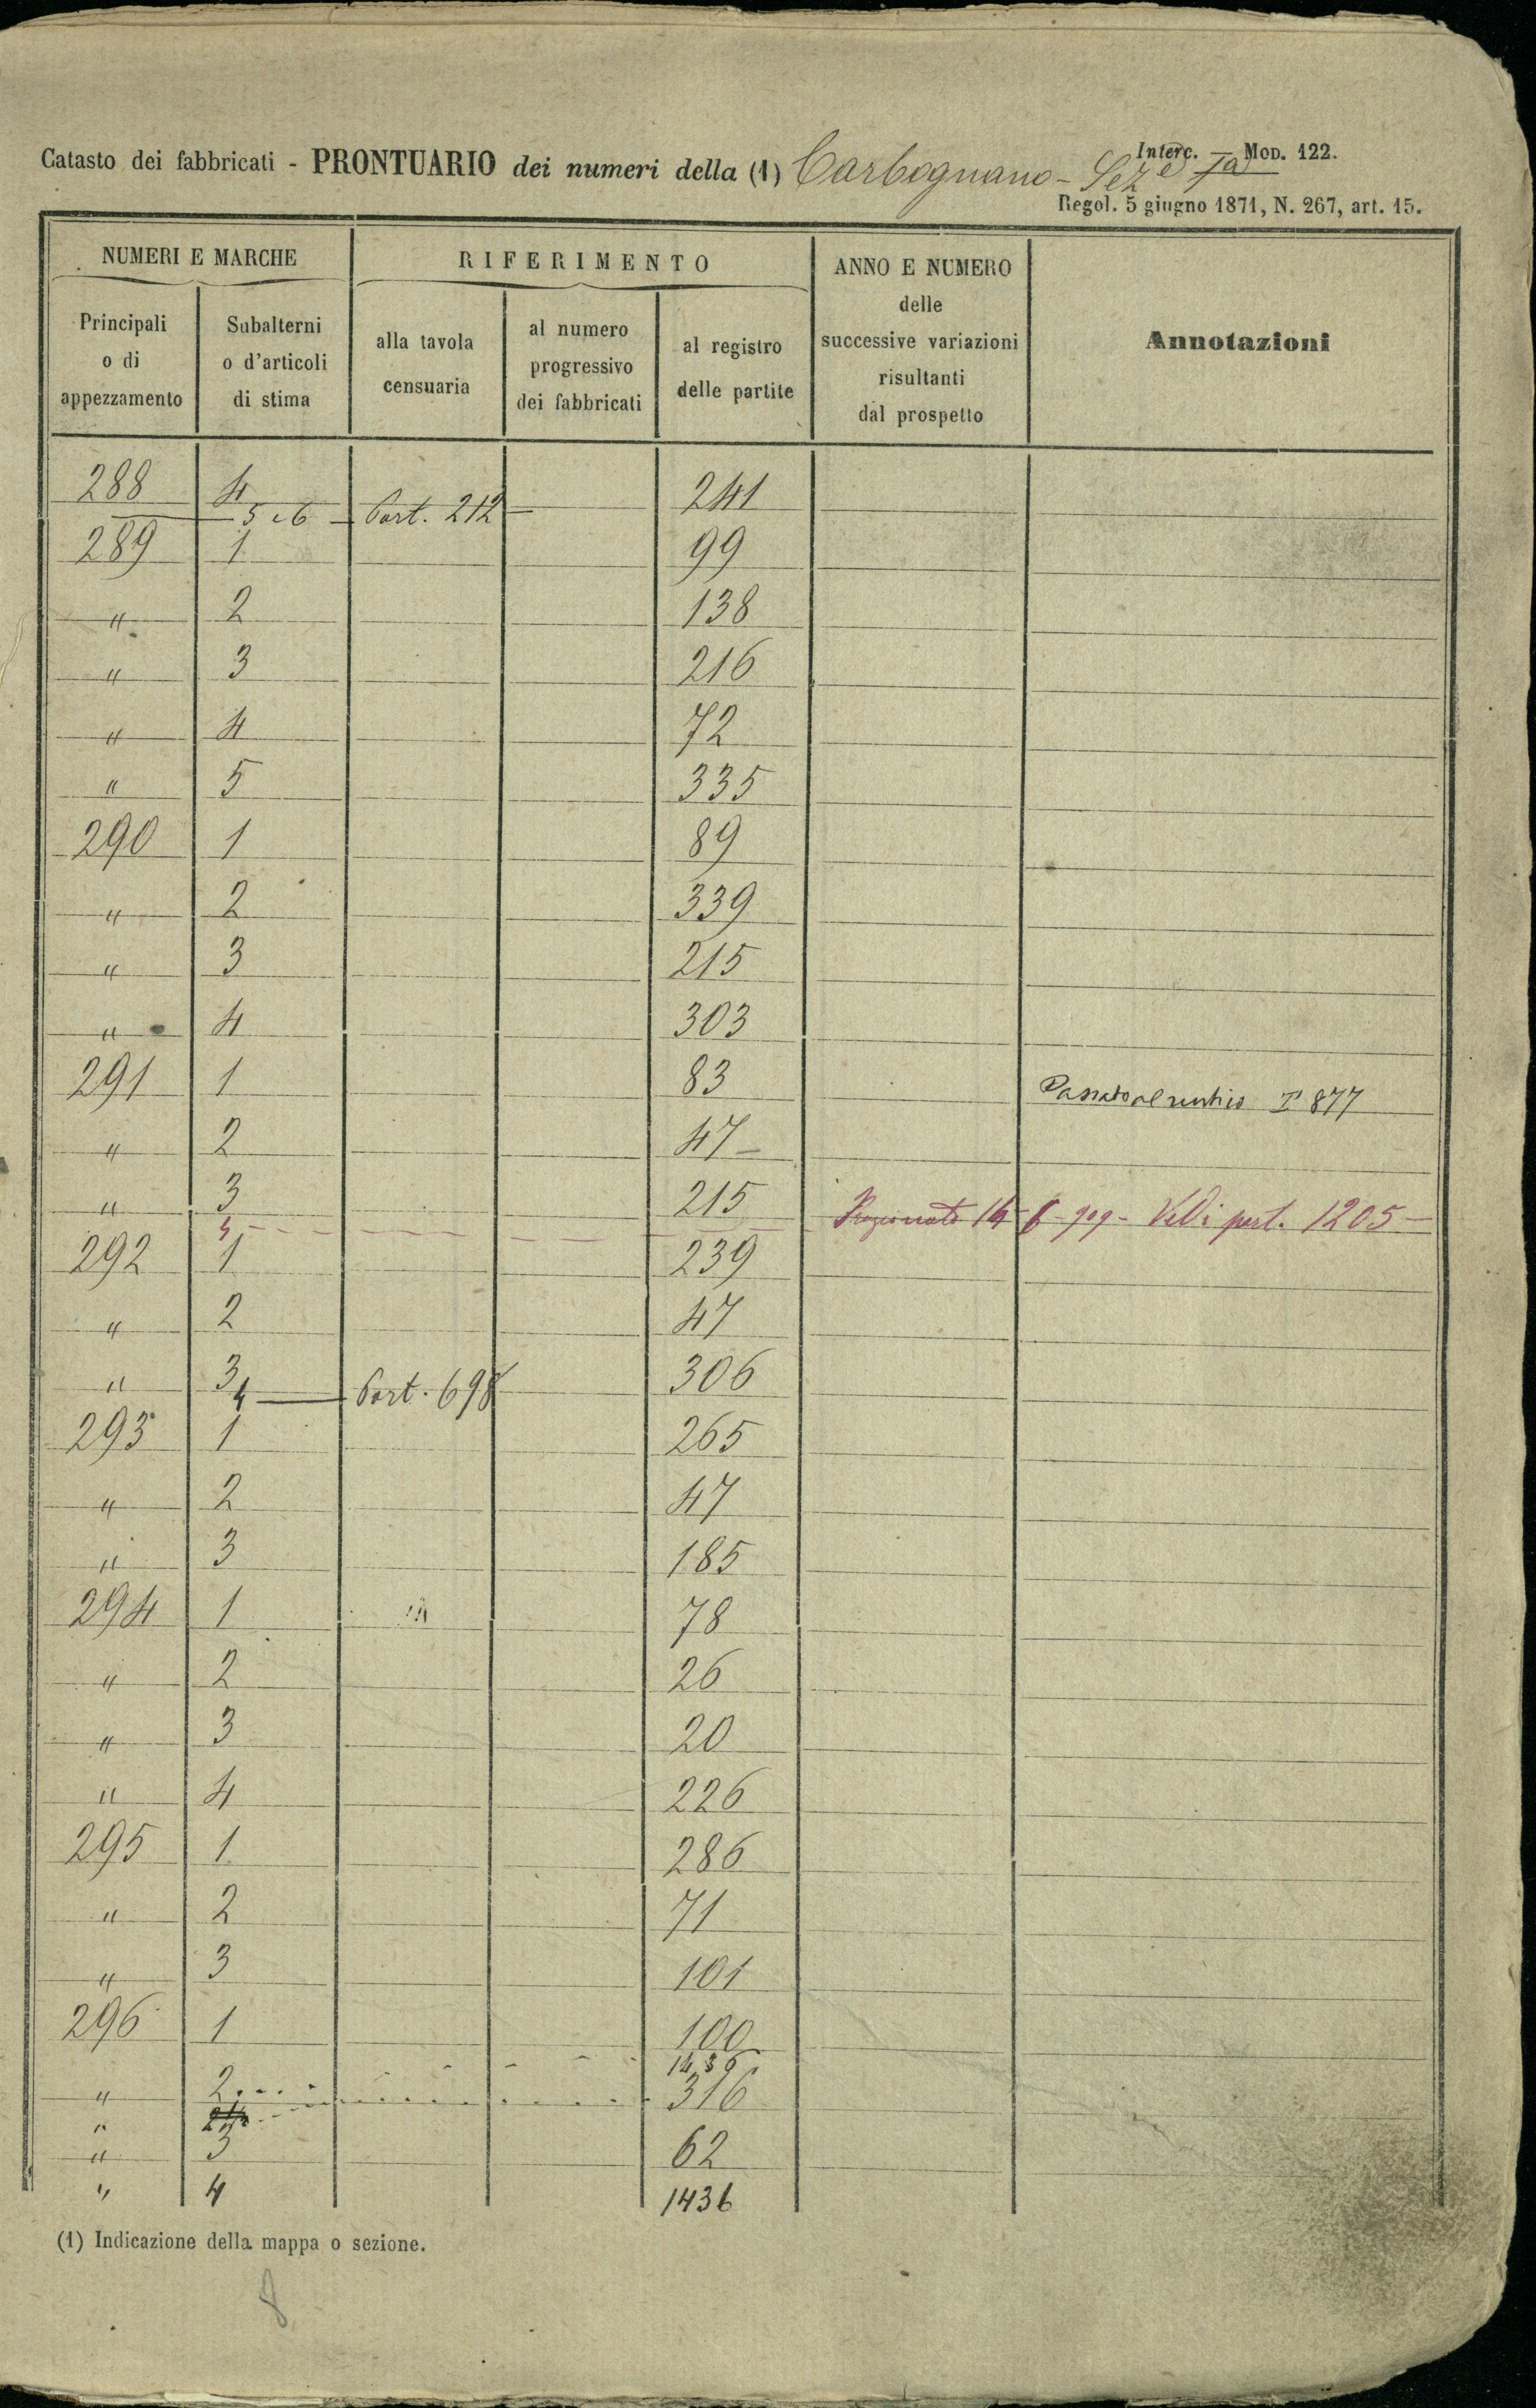 Catasto dei fabbricati - PRONTUARIO dei numeri della (1) Carbognano - Sez.e Ia
Interc. — Mod. 122.
Regol. 5 giugno 1871, N. 267, art. 15.
NUMERI E MARCHE
RIFERIMENTO
ANNO E NUMERO delle successive variazioni risultanti dal prospetto
Annotazioni
Principali o di appezzamento
Subalterni o d'articoli di stima
alla tavola censuaria
al numero progressivo dei fabbricati
al registro delle partite
288 4 241
5 e 6 Part. 212
289 1 99
" 2 138
" 3 216
" 4 72
" 5 335
290 1 89
" 2 339
" 3 215
" 4 303
291 1 83 Passato al I° 877
" 2 47 –
" 3 215
4 14-6-909 - Vedi part. 1205 –
292 1 239
" 2 47
" 3 306
4 Part. 698
293 1 265
" 2 47
" 3 185
294 1 78
" 2 26
" 3 20
" 4 226
295 1 286
" 2 71
" 3 101
296 1 100
1436
" 2 316
"
" 3 62
" 4 1436
(1) Indicazione della mappa o sezione.
8